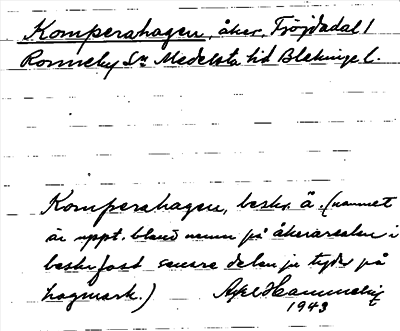 Komperahagen, åker, Fröjdadal 1
Ronneby Sn Medelsta hd Blekinge l.
Komperahagen, beskr. å. (namnet
är uppt. bland namn på åkerarealen i
beskr. fast senare delen ju tyder på
hagmark.) Axel Hammelin
1943